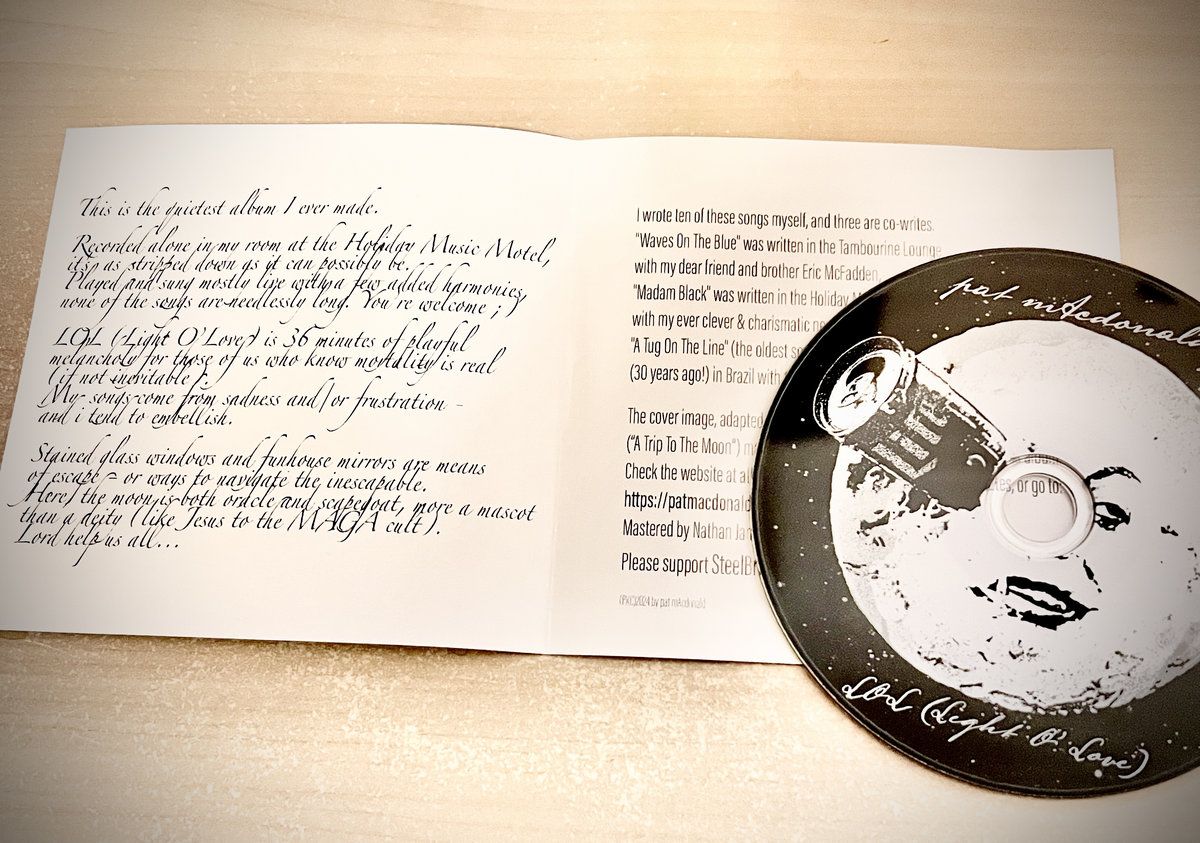 This is the quietest album I ever made.
Recorded alone in my room at the Holiday Music Motel,
it's as stripped down as it can possibly be.
Played and sung mostly live with a few added harmonies,
none of the songs are needlessly long. You're welcome ;)
LOL (Light O' Love) is 36 minutes of playful
melancholy for those of us who know mortality is real
(if not inevitable).
My songs come from sadness and/or frustration -
and i tend to embellish.
Stained glass windows and funhouse mirrors are means
of escape - or ways to navigate the inescapable.
Here, the moon is both oracle and scapegoat, more a mascot
than a deity (like Jesus to the MAGA cult).
Lord help us all...
I wrote ten of these songs myself, and three are co-writes.
"Waves On The Blue" was written in the Tambourine Lounge
with my dear friend and brother Eric McFadden.
"Madam Black" was written in the Holiday
with my ever clever & charismatic
"A Tug On The Line" (the oldest
(30 years ago!) in Brazil with
The cover image, adapted
("A Trip To The Moon")
Check the website at
https://patmacdonald
Mastered by Nathan
Please support SteelB
(P)(C)2024 by pat mAcdonald
es, or go to:
pat mAcdonald
LITE
LOL (Light O' Love)